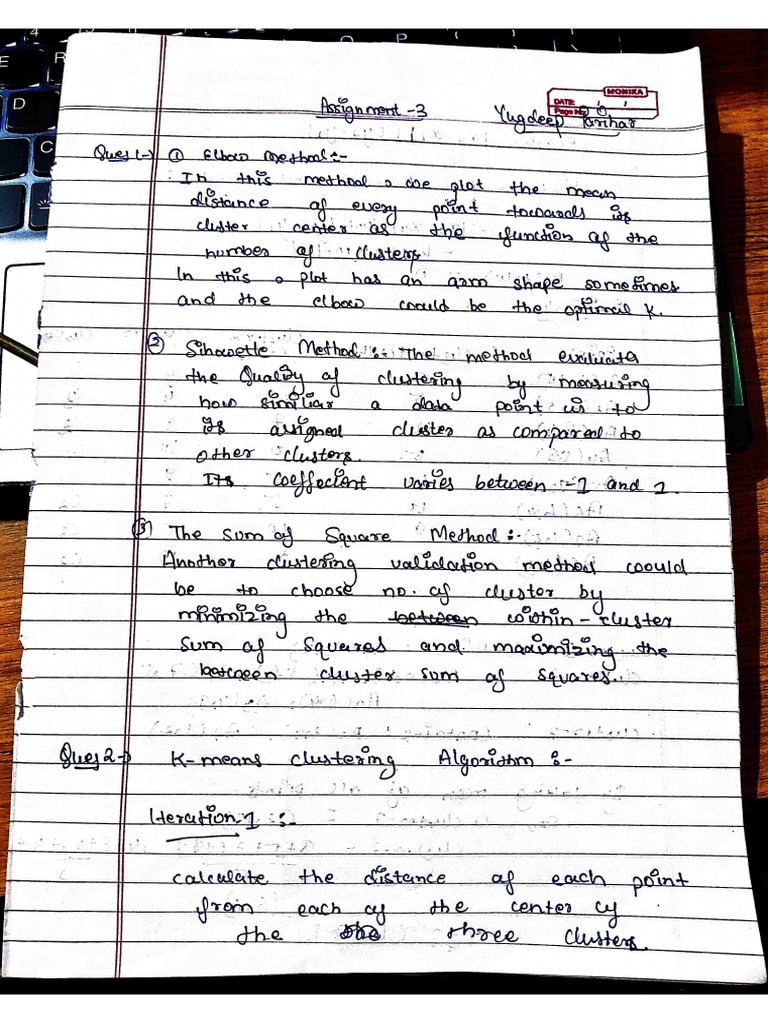 Assignment -3
MONIKA
DATE:
Page No.
Yugdeep Parihar
Ques 1-) ① Elbow Method:-
In this method, we plot the mean
distance of every point towards its
cluster center as the function of the
number of clusters.
In this, plot has an arm shape sometimes
and the elbow would be the optimil K.
② Sihouette Method:- The method evaluates
the Quality of clustering by measuring
how similiar a data point is to
its assigned cluster as compared to
other clusters.
Its coeffecient varies between -1 and 1.
③ The sum of Square Method:-
Another clustering validation method would
be to choose no. of cluster by
minimizing the between within-cluster
sum of squares and maximizing the
between cluster sum of squares.
Ques 2-) K-means clustering Algorithm:-
Iteration-1:-
calculate the distance of each point
from each of the center of
the the three clusters.